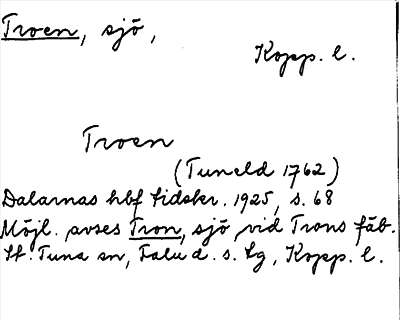 Troen, sjö,
Kopp. l.
Troen
(Tuneld 1762)
Dalarnas hbf tidskr. 1925, s. 68
Möjl. avses Tron, sjö vid Trons fäb.
St. Tuna sn, Falu d. s. tg, Kopp. l.